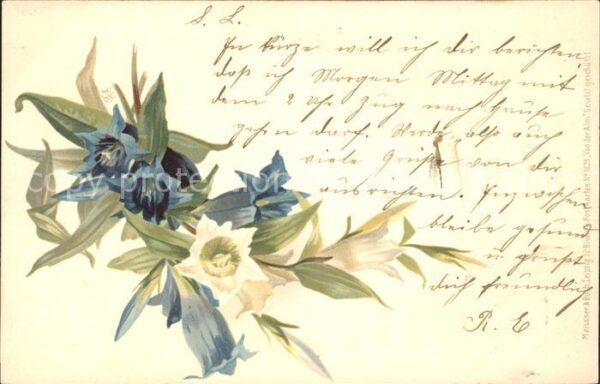 S. L.
In Kürze will ich dir berichten,
daß ich Morgen Mittag mit
dem 2 Uhr Zug nach Hause
gehen darf. Werde also auch
viele Grüße von dir
ausrichten. Inzwischen
bleibe gesund
u grüßt
dich freundlich
R. E
Meissner & Buch, Leipzig Künstler-Postkarten